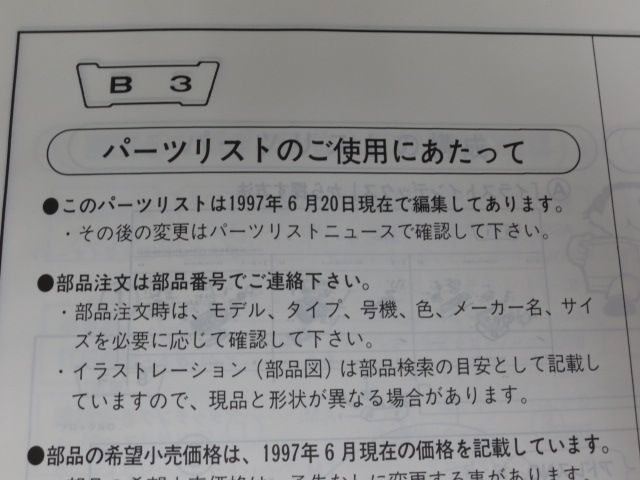 B 3
パーツリストのご使用にあたって
●このパーツリストは1997年6月20日現在で編集してあります。
・その後の変更はパーツリストニュースで確認して下さい。
●部品注文は部品番号でご連絡下さい。
・部品注文時は、モデル、タイプ、号機、色、メーカー名、サイ
ズを必要に応じて確認して下さい。
・イラストレーション(部品図)は部品検索の目安として記載し
ていますので、現品と形状が異なる場合があります。
●部品の希望小売価格は、1997年6月現在の価格を記載しています。